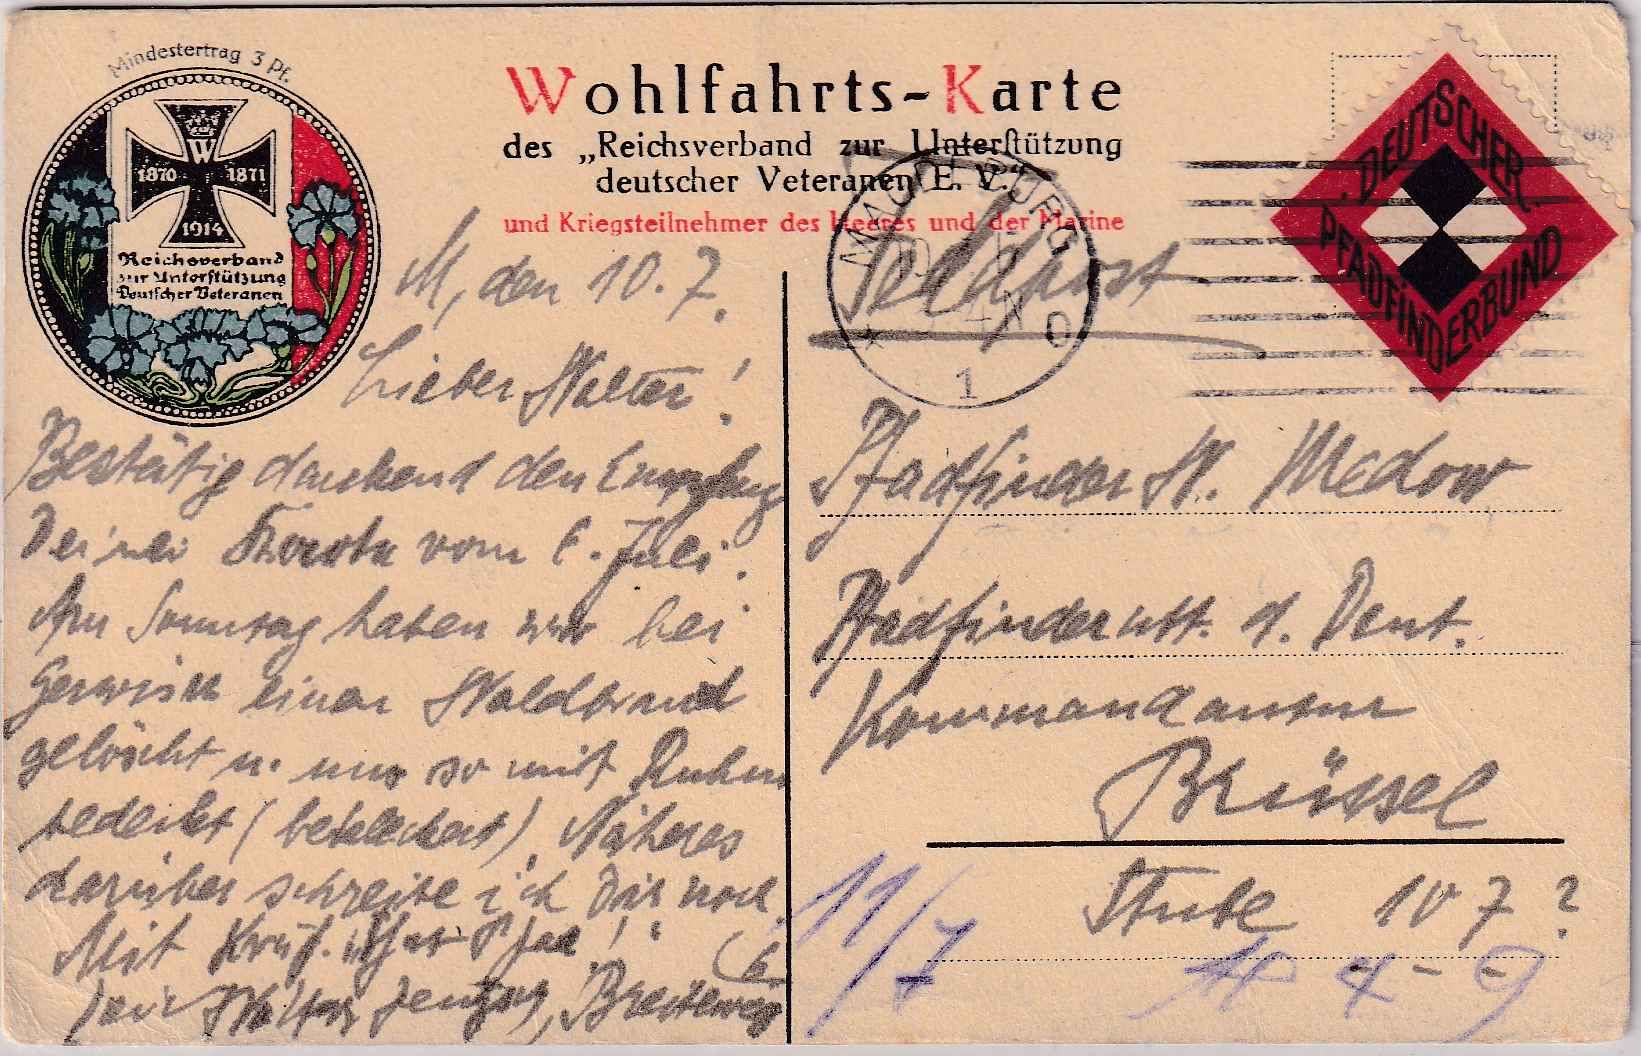 Mindestertrag 3 Pf.
W
1870 1871
1914
Reichsverband
zur Unterstützung
Deutscher Veteranen
Wohlfahrts-Karte
des „Reichsverband zur Unterstützung
deutscher Veteranen E. V."
und Kriegsteilnehmer des Heeres und der Marine
MAGDEBURG
1
DEUTSCHER
PFADFINDERBUND
Feldpost
M, den 10. 7.
Lieber Walter!
Bestätig dankend den Empfang
Deiner Karte vom 6. Juli.
Am Sonntag haben wir bei
Gerwisch einen Waldbrand
gelöscht u. uns so mit Ruhm
bedeckt (bekleckert). Näheres
darüber schreibe ich Dir noch.
Mit
Dein Walter
Pfadfinder W. Medow
Pfadfinderabt. d. Deut.
Kommandantur
Brüssel
Stube 107?
11/7